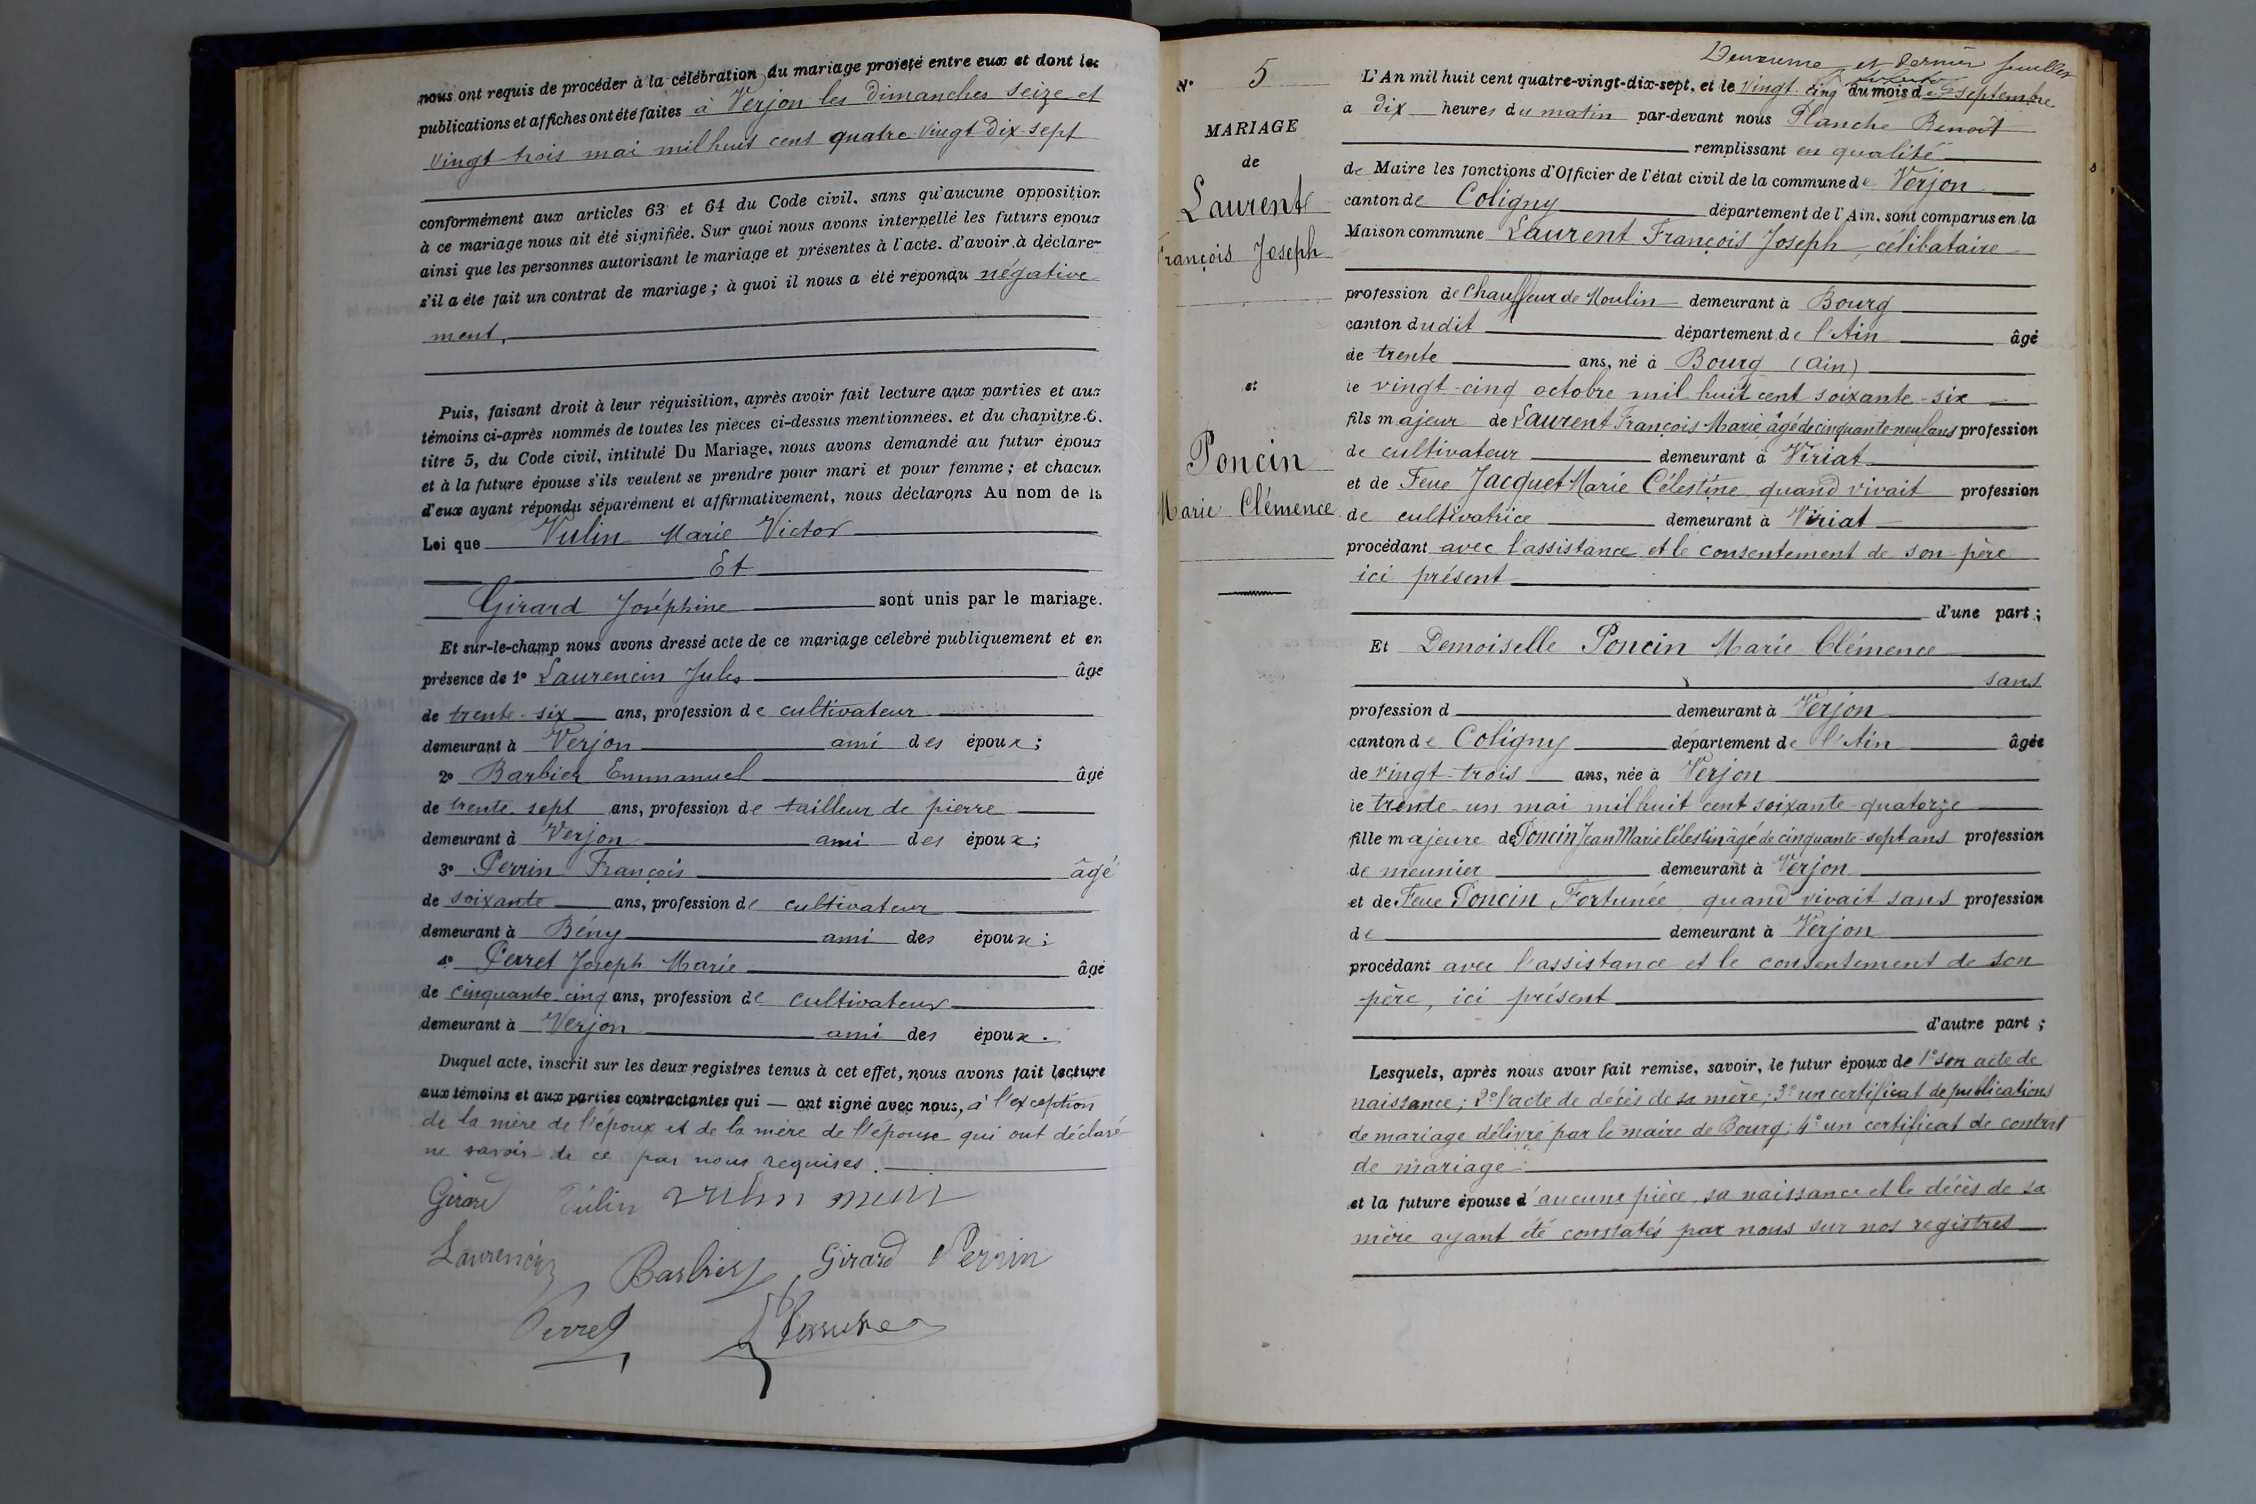 nous ont requis de procéder à la célébration du mariage projeté entre eux et dont les
publications et affiches ont été faites à Verjon les dimanches seize et
vingt-trois mai mil huit cent quatre-vingt dix-sept
conformément aux articles 63 et 64 du Code civil, sans qu'aucune opposition
à ce mariage nous ait été signifiée. Sur quoi nous avons interpellé les futurs époux
ainsi que les personnes autorisant le mariage et présentes à l'acte, d'avoir à déclarer
s'il a été fait un contrat de mariage ; à quoi il nous a été répondu négative
ment,
Puis, faisant droit à leur réquisition, après avoir fait lecture aux parties et aux
témoins ci-après nommés de toutes les pièces ci-dessus mentionnées, et du chapitre 6,
titre 5, du Code civil, intitulé Du Mariage, nous avons demandé au futur époux
et à la future épouse s'ils veulent se prendre pour mari et pour femme ; et chacun
d'eux ayant répondu séparément et affirmativement, nous déclarons Au nom de la
Loi que Vulin Marie Victor
Et
Girard Joséphine sont unis par le mariage.
Et sur-le-champ nous avons dressé acte de ce mariage célébré publiquement et en
présence de 1° Laurencin Jules âgé
de trente-six ans, profession de cultivateur
demeurant à Verjon ami des époux ;
2° Barbier Emmanuel âgé
de trente-sept ans, profession de tailleur de pierre
demeurant à Verjon ami des époux ;
3° Perrin François âgé
de soixante ans, profession de cultivateur
demeurant à Bény ami des époux ;
4° Perret Joseph Marie âgé
de cinquante-cinq ans, profession de cultivateur
demeurant à Verjon ami des époux.
Duquel acte, inscrit sur les deux registres tenus à cet effet, nous avons fait lecture
aux témoins et aux parties contractantes qui — ont signé avec nous, à l'exception
de la mère de l'époux et de la mère de l'épouse qui ont déclaré
ne savoir de ce par nous requises.
Girard Vulin vulin
Laurencin Barbier Girard Perrin
Perret
Deuxième et dernier feuillet
N° 5
MARIAGE
de
Laurent
François Joseph
et
Poncin
Marie Clémence
L'An mil huit cent quatre-vingt-dix-sept, et le vingt-cinq du mois de septembre
à dix heures du matin par-devant nous Planche Benoît
remplissant en qualité
de Maire les fonctions d'Officier de l'état civil de la commune de Verjon
canton de Coligny département de l'Ain, sont comparus en la
Maison commune Laurent François Joseph, célibataire
profession de Chauffeur de Moulin demeurant à Bourg
canton dudit département de l'Ain âgé
de trente ans, né à Bourg (Ain)
le vingt-cinq octobre mil huit cent soixante-six
fils majeur de Laurent François Marie, âgé de cinquante-neuf ans profession
de cultivateur demeurant à Viriat
et de Feue Jacquet Marie Célestine quand vivait profession
de cultivatrice demeurant à Viriat
procédant avec l'assistance et le consentement de son père
ici présent
d'une part ;
Et Demoiselle Poncin Marie Clémence
sans
profession d demeurant à Verjon
canton de Coligny département de l'Ain âgée
de vingt-trois ans, née à Verjon
le trente-un mai mil huit cent soixante-quatorze
fille majeure de Poncin Jean Marie Célestin âgé de cinquante-sept ans profession
de meunier demeurant à Verjon
et de Feue Poncin Fortunée quand vivait sans profession
de demeurant à Verjon
procédant avec l'assistance et le consentement de son
père, ici présent
d'autre part ;
Lesquels, après nous avoir fait remise, savoir, le futur époux de 1° son acte de
naissance ; 2° l'acte de décès de sa mère ; 3° un certificat de publications
de mariage délivré par le maire de Bourg ; 4° un certificat de contrat
de mariage
et la future épouse d'aucune pièce, sa naissance et le décès de sa
mère ayant été constatés par nous sur nos registres